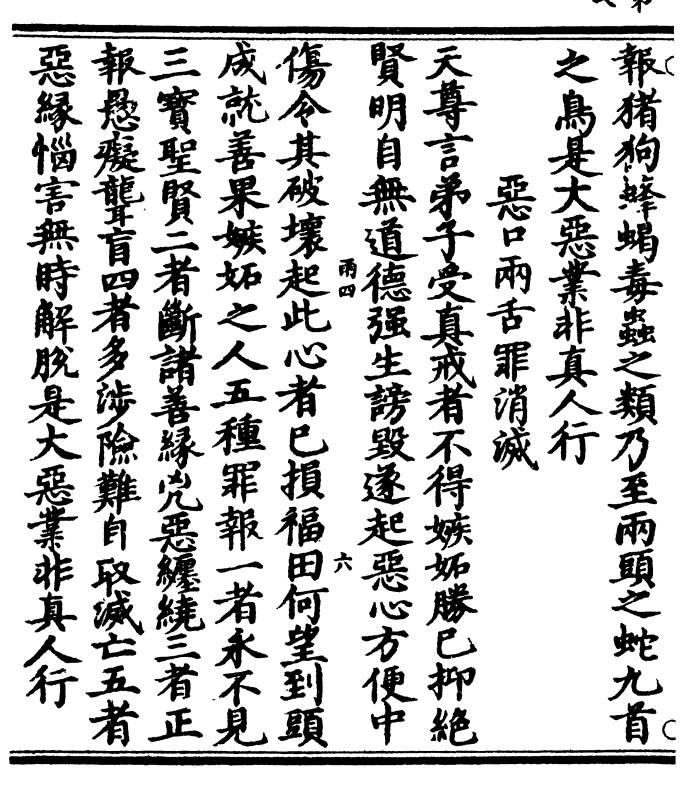 報猪狗蜂蝎毒蟲之類乃至兩頭之蛇九首
之鳥是大惡業非真人行
惡口兩舌罪消滅
天尊言弟子受真戒者不得嫉妬勝己抑絶
賢明自無道德强生謗毀遂起惡心方便中
兩四
六
傷令其破壞起此心者已損福田何望到頭
成就善果嫉妬之人五種罪報一者永不見
三寶聖賢二者斷諸善緣兇惡纏繞三者正
報愚癡聾盲四者多涉險難自取滅亡五者
惡緣惱害無時解脫是大惡業非真人行